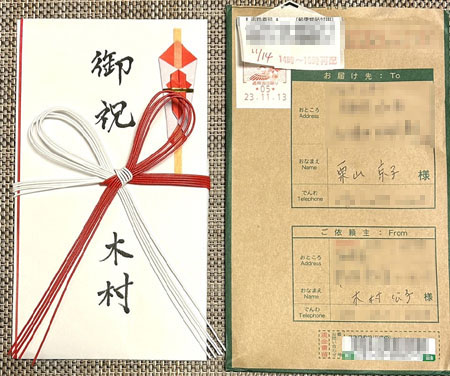 御祝
木村
11/14
14時～16時希望
05
23.11.13
お届け先：To
おところ
Address
おなまえ
Name
栗山 京子 様
でんわ
Telephone
ご依頼主：From
おところ
Address
おなまえ
Name
木村 公子 様
でんわ
Telephone